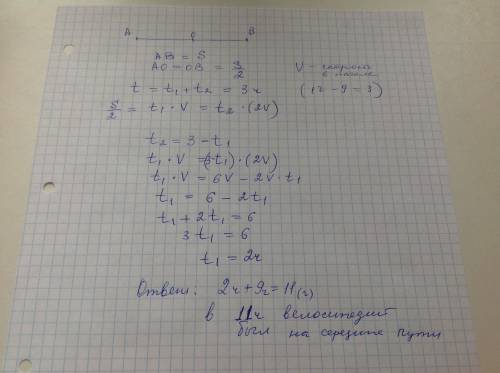 A O B
AB = S
AO = OB = S/2
V - скорость
в начале
t = t₁ + t₂ = 3ч
(12 - 9 = 3)
S/2 = t₁ · V = t₂ · (2V)
t₂ = 3 - t₁
t₁ · V = (3-t₁) · (2V)
t₁ · V = 6V - 2V · t₁
t₁ = 6 - 2t₁
t₁ + 2t₁ = 6
3t₁ = 6
t₁ = 2ч
Ответ: 2ч + 9ч = 11(ч)
в 11ч велосипедист
был на середине пути